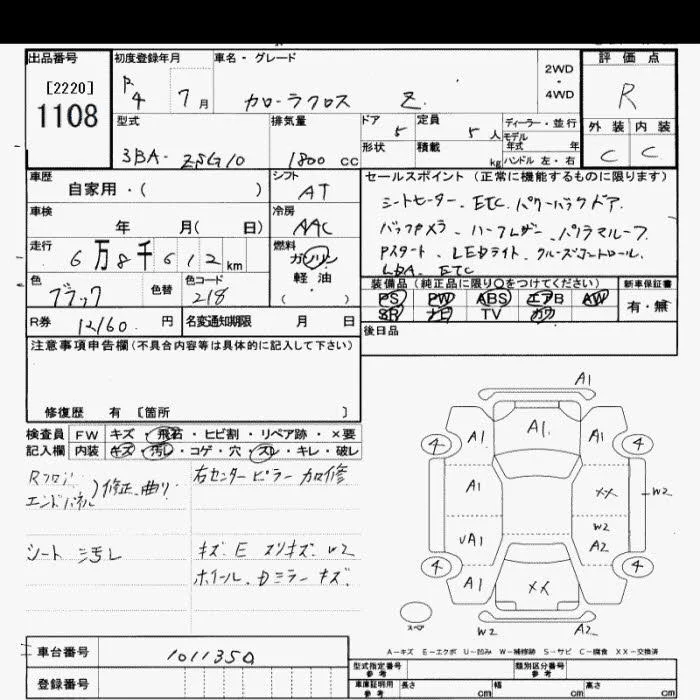 出品番号 初度登録年月 車名・グレード 2WD・4WD 評価点
[2220]
1108
R4 7月 カローラクロス Z R
型式 排気量 ドア 定員 ディーラー・並行 外装 内装
3BA-ZSG10 1800cc 5 5人 モデル年式 年 C C
形状 積載 kg ハンドル 左・右
車歴 シフト セールスポイント (正常に機能するものに限ります)
自家用・( ) AT シートヒーター、ETC、パワーバックドア、
車検 冷房 バックカメラ、ハーフレザー、パノラマルーフ、
年 月( 日) AAC Pスタート、LEDライト、クルーズコントロール、
走行 燃料 LDA、ETC
6万8千612km ガソリン
軽・油
( )
色 色替 色コード 装備品 (純正品に限り〇をつけてください) 新車保証書
ブラック 218 PS PW ABS エアB AW 有・無
SR ナビ TV カワ
R券 12160円 名変通知期限 月 日 後日品
注意事項申告欄(不具合内容等は具体的に記入して下さい)
修復歴 有 〔箇所 〕
検査員 FW キズ・飛石・ヒビ割・リペア跡・×要
記入欄 内装 キズ・汚し・コゲ・穴・スレ・キレ・破レ
Rフロア
エンドパネル )修正、曲り 右センターピラー加修
シート汚レ キズ、E スリキズ、W2
ホイール、Dミラーキズ、
A1
④ A1 A1 A1 ④
A1 XX W2
UA1 W2 A2
④ A1 XX ④
スペア W2 A2
A-キズ E-エクボ U-凹み W-補修跡 S-サビ C-腐食 XX-交換済
車台番号 1011350
登録番号
型式指定番号 参考 類別区分番号 参考
車庫証明用 参考 長さ cm 幅 cm 高さ cm